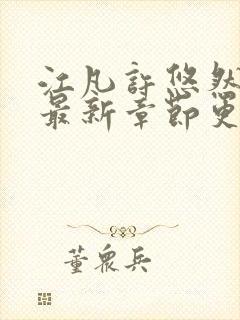 江凡許悠然
最新章節更
董眾兵